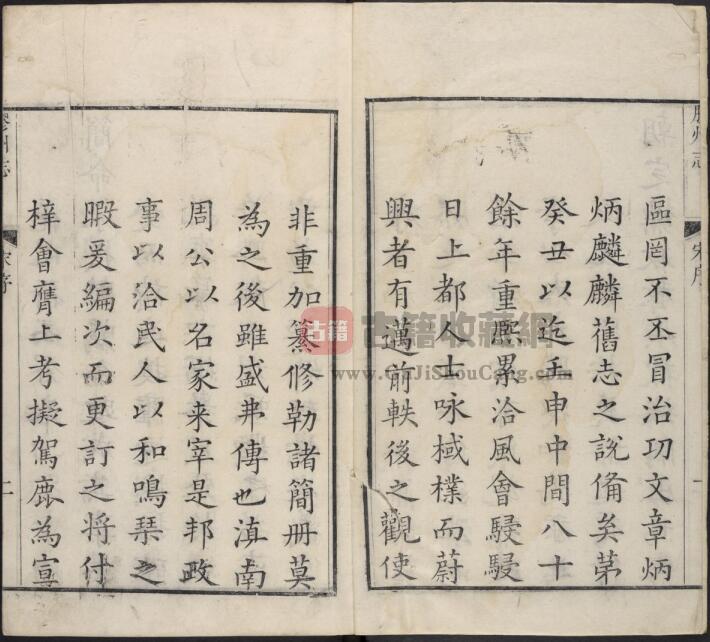 膠州志
宋序
一
區罔不丕冒治功文章炳
炳麟麟舊志之說備矣苐
癸丑以迄壬申中間八十
餘年重熈累洽風會駸駸
日上都人士咏棫樸而蔚
興者有邁前軼後之觀使
非重加纂修勒諸簡册莫
為之後雖盛弗傳也滇南
周公以名家来宰是邦政
事以洽民人以和鳴琴之
暇爰編次而更訂之將付
梓會膺上考擬駕鹿為宣
膠州志
宋序
二
古籍 古籍收藏網
www.GuJiShouCang.com